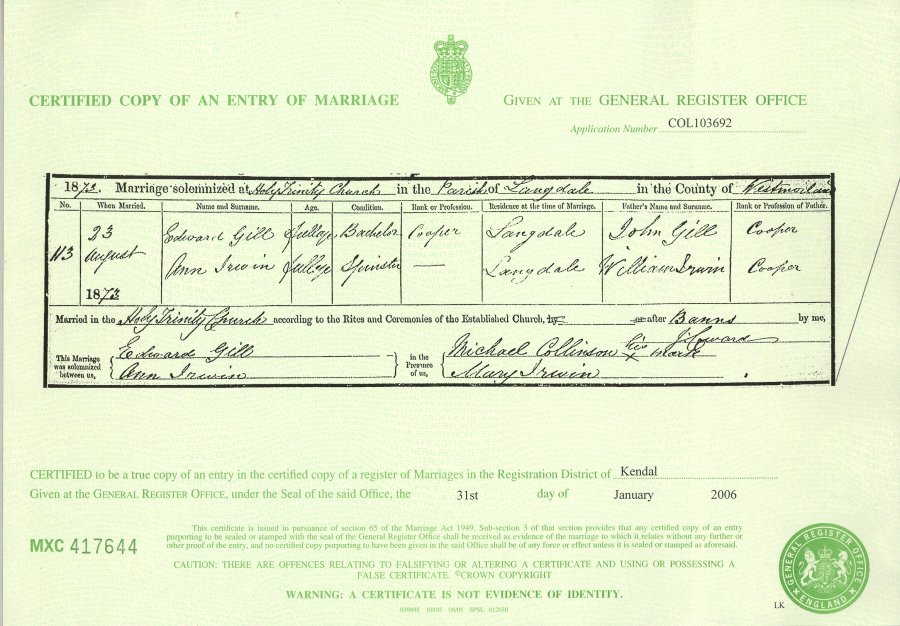 CERTIFIED COPY OF AN ENTRY OF MARRIAGE
GIVEN AT THE GENERAL REGISTER OFFICE
Application Number COL103692
1873. Marriage solemnized at Holy Trinity Church in the Parish of Langdale in the County of Westmorland
No. When Married. Name and Surname. Age. Condition. Rank or Profession. Residence at the time of Marriage. Father's Name and Surname. Rank or Profession of Father.
113 23 August 1873
Edward Gill full age Bachelor Cooper Langdale John Gill Cooper
Ann Irwin full age Spinster — Langdale William Irwin Cooper
Married in the Holy Trinity Church according to the Rites and Ceremonies of the Established Church, by or after Banns by me,
This Marriage was solemnized between us, Edward Gill Ann Irwin
in the Presence of us, Michael Collinson his x mark Mary Irwin
CERTIFIED to be a true copy of an entry in the certified copy of a register of Marriages in the Registration District of Kendal
Given at the GENERAL REGISTER OFFICE, under the Seal of the said Office, the 31st day of January 2006
MXC 417644
This certificate is issued in pursuance of section 65 of the Marriage Act 1949. Sub-section 3 of that section provides that any certified copy of an entry
purporting to be sealed or stamped with the seal of the General Register Office shall be received as evidence of the marriage to which it relates without any further or
other proof of the entry, and no certified copy purporting to have been given in the said Office shall be of any force or effect unless it is sealed or stamped as aforesaid.
CAUTION: THERE ARE OFFENCES RELATING TO FALSIFYING OR ALTERING A CERTIFICATE AND USING OR POSSESSING A
FALSE CERTIFICATE. ©CROWN COPYRIGHT
WARNING: A CERTIFICATE IS NOT EVIDENCE OF IDENTITY.
GENERAL REGISTER OFFICE
ENGLAND
LK